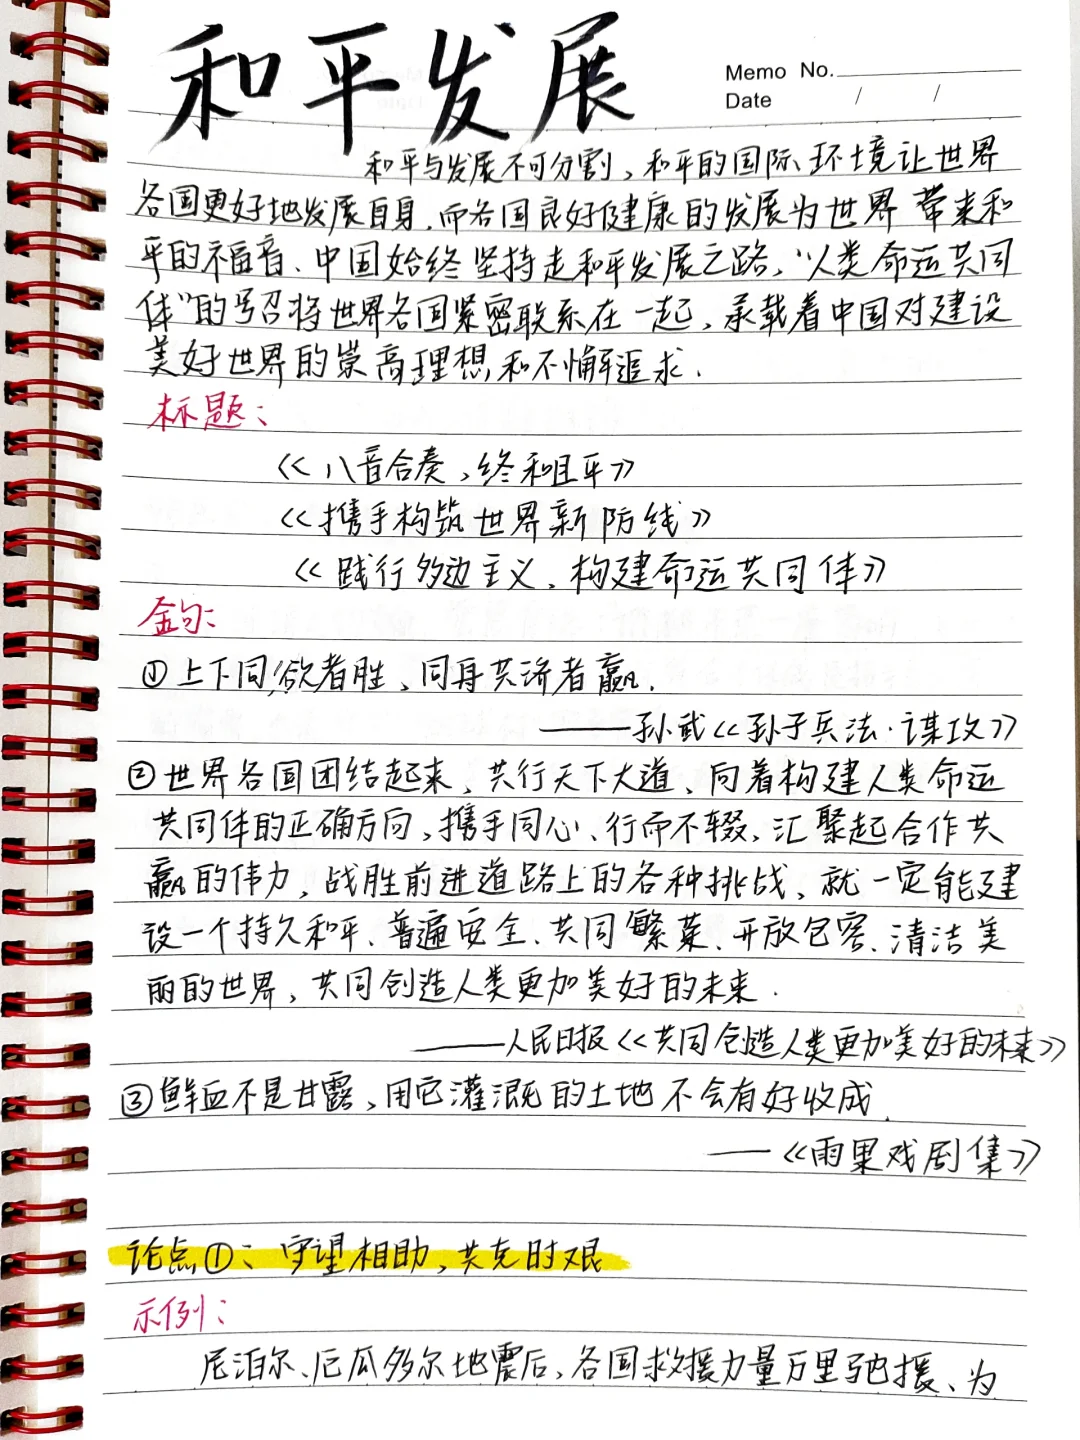 和平发展
Memo No.
Date / /
和平与发展不可分割、和平的国际环境让世界
各国更好地发展自身,而各国良好健康的发展为世界带来和
平的福音、中国始终坚持走和平发展之路,“人类命运共同
体”的号召将世界各国紧密联系在一起,承载着中国对建设
美好世界的崇高理想和不懈追求.
标题:
《八音合奏,终和且平》
《携手构筑世界新防线》
《践行多边主义、构建命运共同体》
金句:
①上下同欲者胜、同舟共济者赢.
——孙武《孙子兵法·谋攻》
②世界各国团结起来、共行天下大道、向着构建人类命运
共同体的正确方向,携手同心、行而不辍,汇聚起合作共
赢的伟力,战胜前进道路上的各种挑战、就一定能建
设一个持久和平、普遍安全、共同繁荣、开放包容、清洁美
丽的世界,共同创造人类更加美好的未来.
——人民日报《共同创造人类更加美好的未来》
③鲜血不是甘露,用它灌溉的土地不会有好收成.
—《雨果戏剧集》
论点①:守望相助,共克时艰
示例:
尼泊尔、厄瓜多尔地震后,各国救援力量万里驰援、为